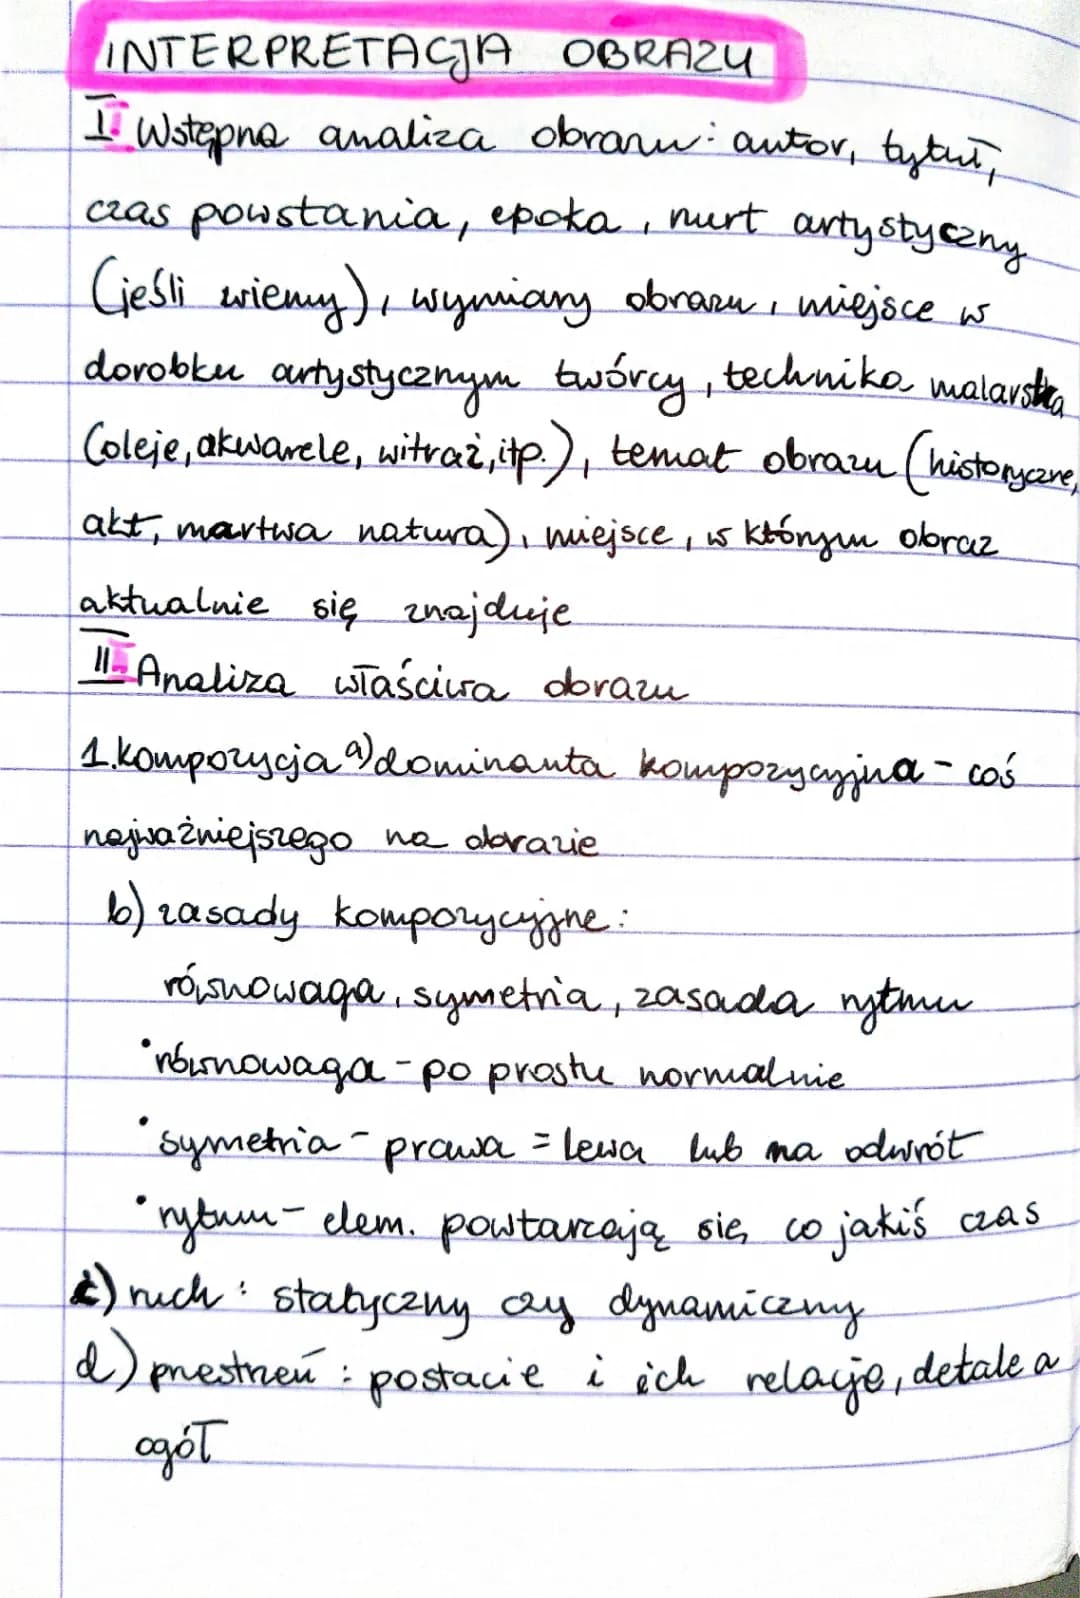 INTERPRETACJA OBRAZU
I. Wstępna analiza obrazu: autor, tytuł,
czas powstania, epoka, nurt artystyczny
(jeśli wiemy), wymiary obrazu, miejsce w
dorobku artystycznym twórcy, technika malarska
(oleje, akwarele, witraż, itp.), temat obrazu (historyczne,
akt, martwa natura), miejsce, w którym obraz
aktualnie się znajduje
II. Analiza właściwa obrazu
1. kompozycja a) dominanta kompozycyjna - coś
najważniejszego na obrazie
b) zasady kompozycyjne:
równowaga, symetria, zasada rytmu
• równowaga - po prostu normalnie
• symetria - prawa = lewa lub na odwrót
• rytm - elem. powtarzają się co jakiś czas
c) ruch: statyczny czy dynamiczny
d) przestrzeń: postacie i ich relacje, detale a
ogół